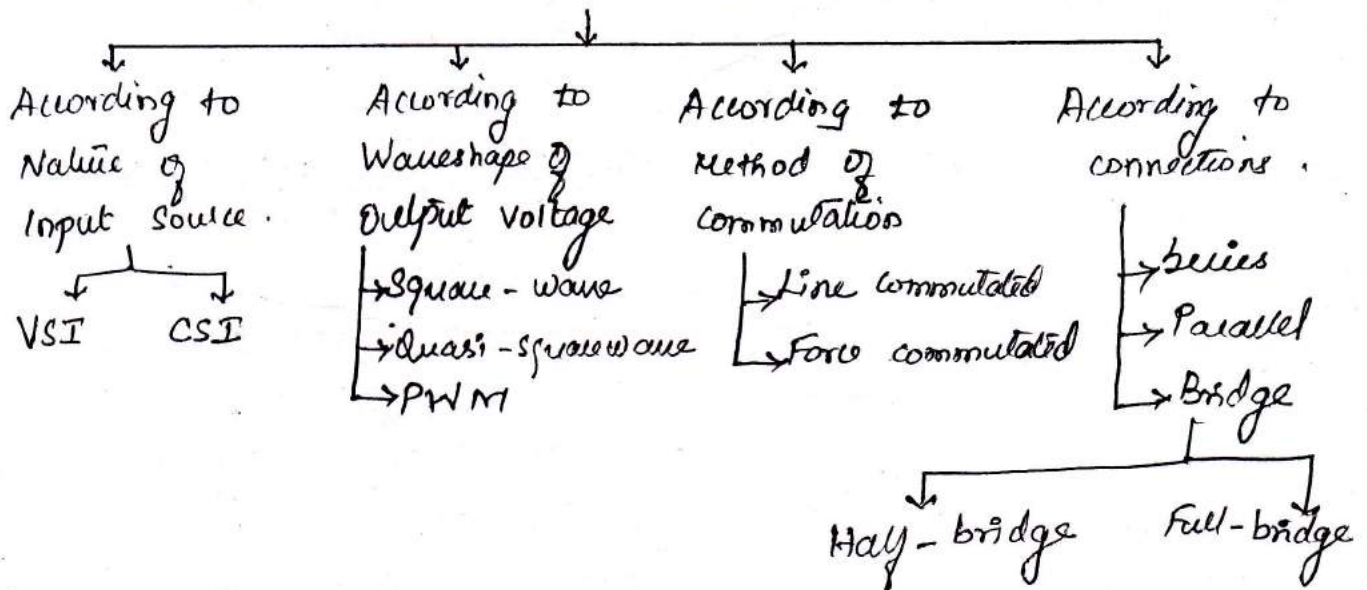 According to
Nature of
Input Source.
VSI
CSI
According to
Waveshape of
Output voltage
Square-wave
Quasi-squarewave
PWM
According to
Method of
commutation
Line commutated
Force commutated
According to
connections.
Series
Parallel
Bridge
Half-bridge
Full-bridge